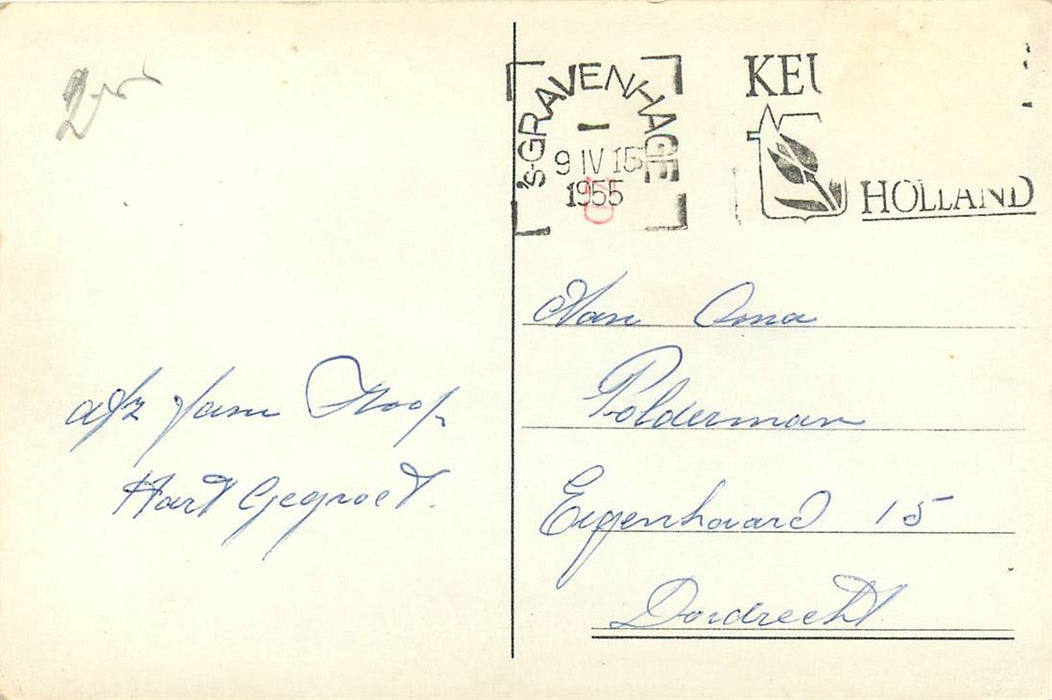 's-GRAVENHAGE
9 IV 15
1955
KEU
HOLLAND
afz Fam
Hart Gegroet.
Oma
Polderman
Eigenhaard 15
Dordrecht